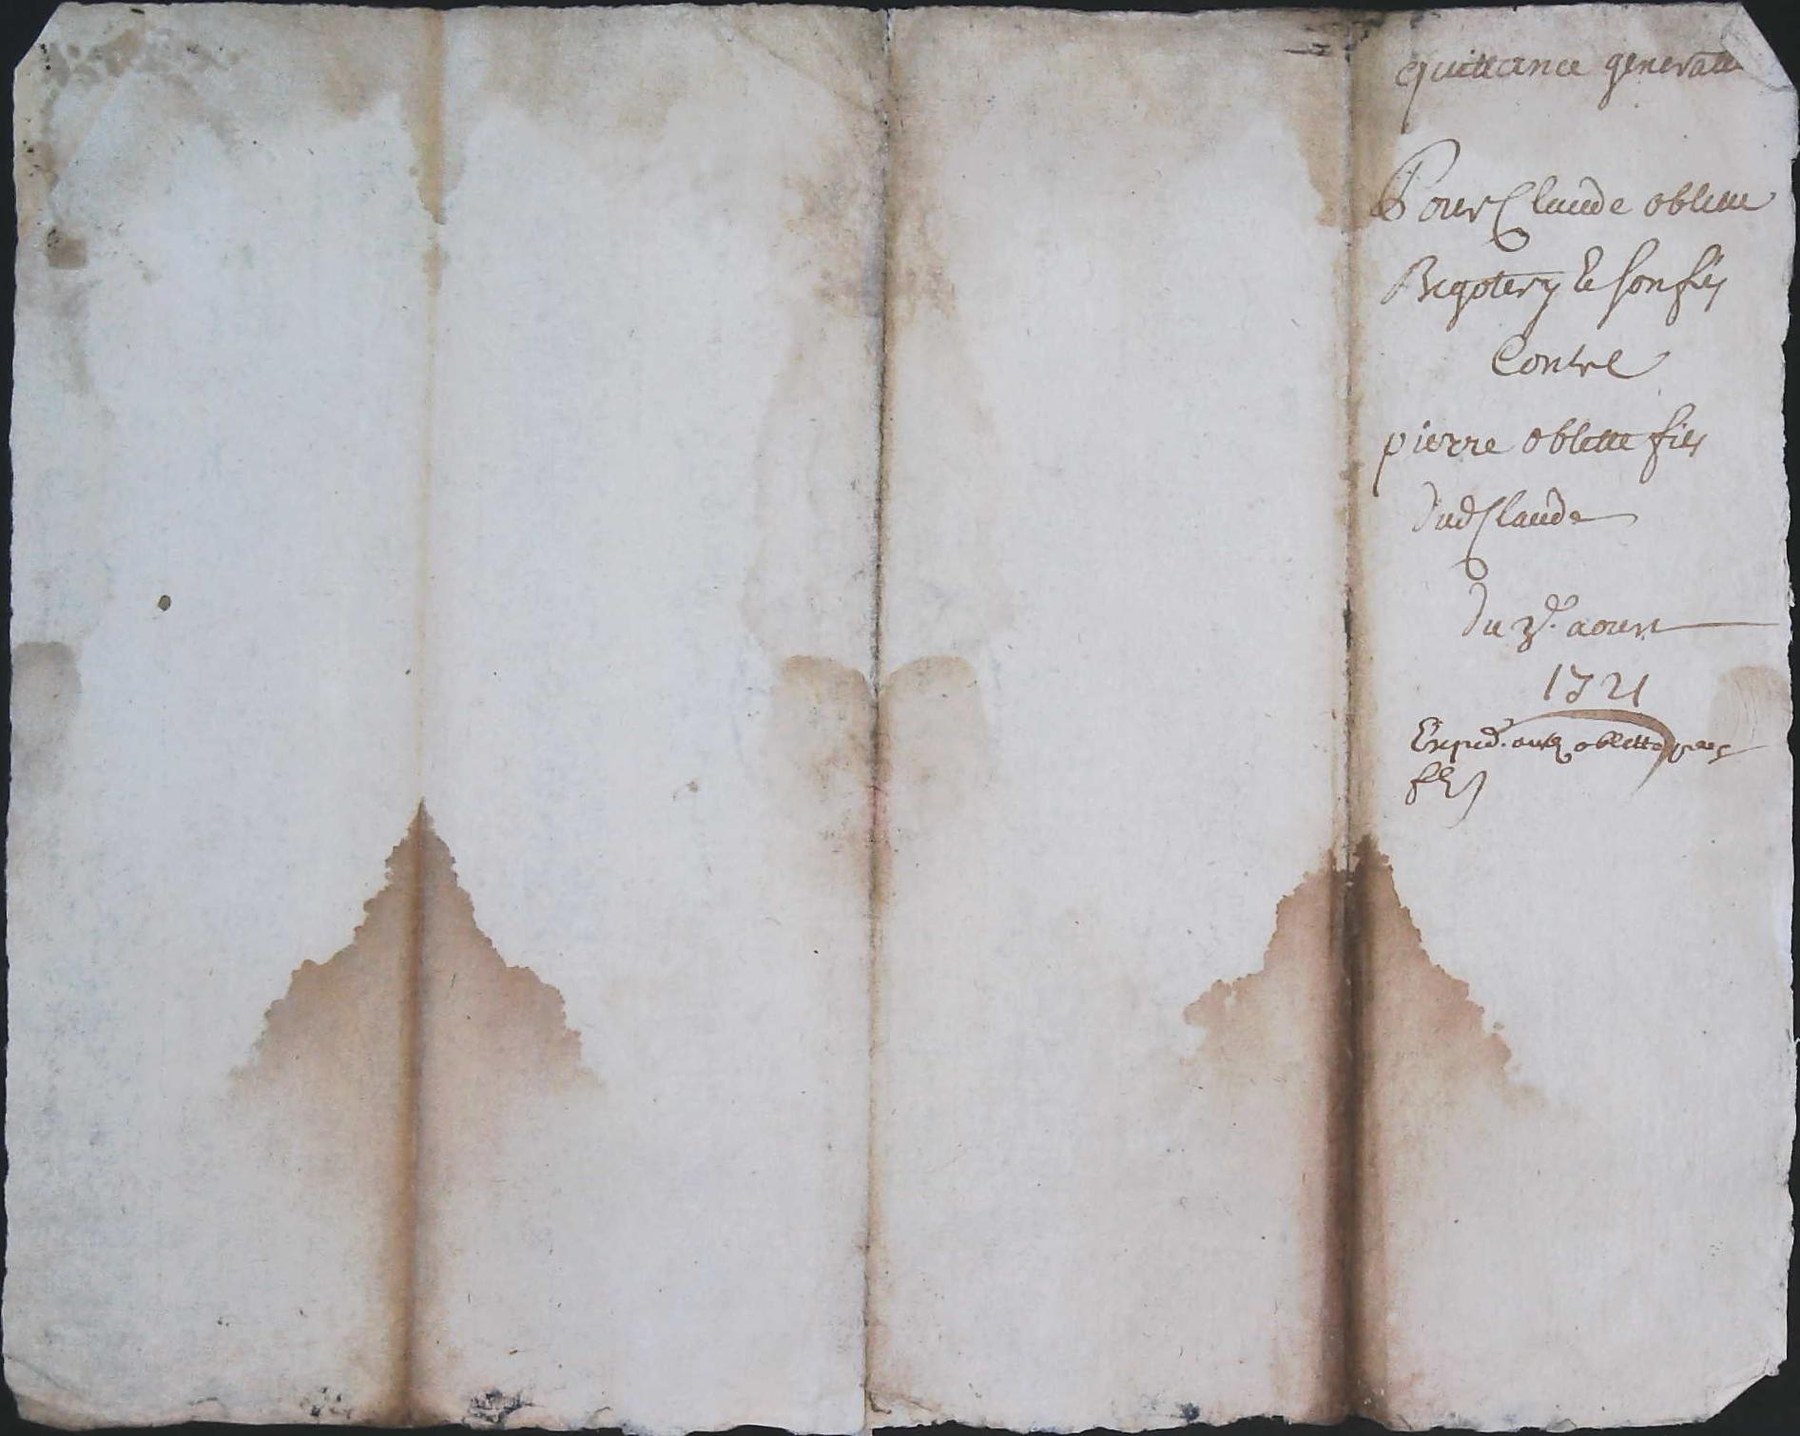 quittance generalle
Pour Claude oblette
Bigotery & son fils
Contre
pierre oblette fils
dud Claude
du 3e. aoust
1721
Exped. aud oblette
fils